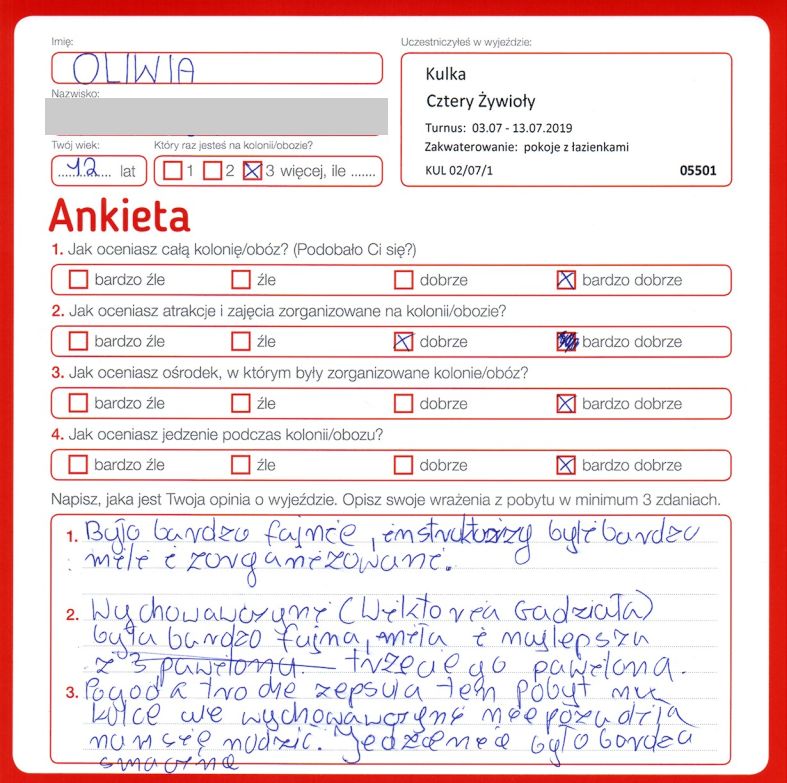 Imię:
OLIWIA
Nazwisko:
Twój wiek:
12 lat
Który raz jesteś na kolonii/obozie?
1 2 3 więcej, ile .......
Uczestniczyłeś w wyjeździe:
Kulka
Cztery Żywioły
Turnus: 03.07 - 13.07.2019
Zakwaterowanie: pokoje z łazienkami
KUL 02/07/1 05501
Ankieta
1. Jak oceniasz całą kolonię/obóz? (Podobało Ci się?)
bardzo źle źle dobrze bardzo dobrze
2. Jak oceniasz atrakcje i zajęcia zorganizowane na kolonii/obozie?
bardzo źle źle dobrze bardzo dobrze
3. Jak oceniasz ośrodek, w którym były zorganizowane kolonie/obóz?
bardzo źle źle dobrze bardzo dobrze
4. Jak oceniasz jedzenie podczas kolonii/obozu?
bardzo źle źle dobrze bardzo dobrze
Napisz, jaka jest Twoja opinia o wyjeździe. Opisz swoje wrażenia z pobytu w minimum 3 zdaniach.
1. Było bardzo fajnie, instruktorzy byli bardzo
mili i zorganizowani.
2. Wychowawczyni (Wiktoria Gadziała)
była bardzo fajna, miła i najlepsza
z 3 pawilonu trzeciego pawilona.
3. Pogoda tro die zepsuła ten pobyt na
kulce ale wychowawczyni nie pozwoliła
nam się nudzić. Jedzenie było bardzo
smaczne